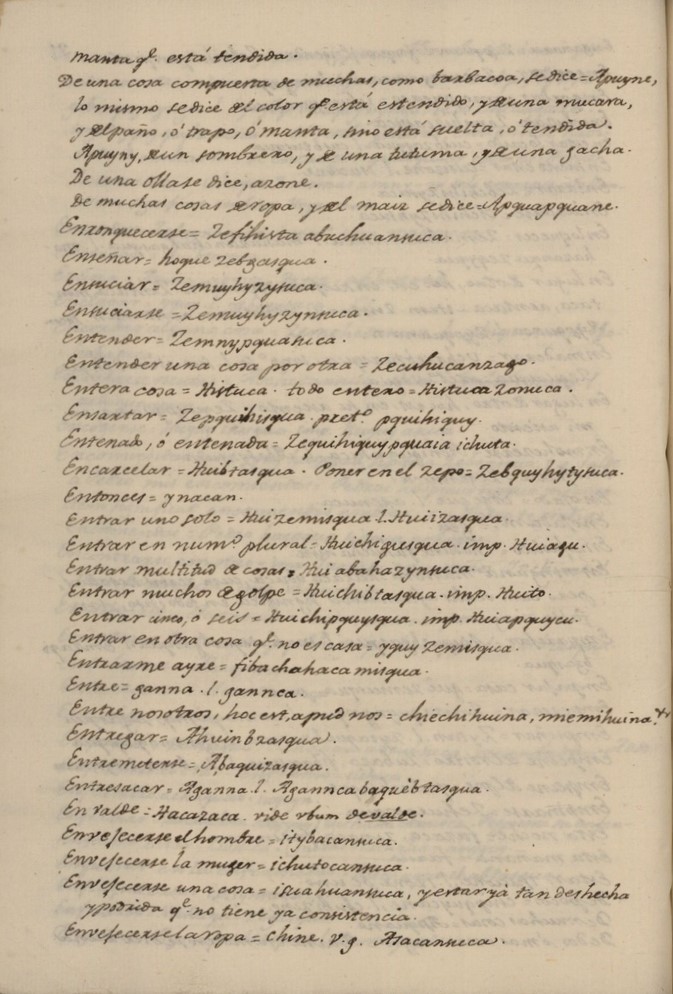 manta q.^e está tendida.
De una cosa compuesta de muchas, como barbacoa, se dice = Apuyne,
lo mismo se dice del color q.^e está estendido, y de una mucura,
y del paño, ó trapo, ó manta, sino está suelta, ó tendida.
Apuyny, de un sombrero, y de una tutuma, y de una gacha.
De una olla se dice, azone.
de muchas cosas de ropa, y del maiz se dice = Apquapquane.
Enronquecerse = Zefihista abuchuansuca.
Enseñar = hoque zebgasqua.
Ensuciar = Zemuyhyzysuca.
Ensuciarse = Zemuyhyzynsuca.
Entender = Zemnypquasuca.
Entender una cosa por otra = Zecuhucanzago.
Entera cosa = Histuca. todo entero = Histuca zonuca.
Ensartar = Zepquihisqua. pret.^o pquihiquy.
Entenado, ó entenada = Zequihiquypquaia ichuta.
Encarcelar = Huibtasqua. Poner en el zepo = Zebquyhytysuca.
Entonces = ynacan.
Entrar uno solo = Hui zemisqua l. Hui izasqua.
Entrar en num.^o plural = Huichigusqua. imp. Huiagu.
Entrar multitud de cosas = Hui abahazynsuca.
Entrar muchos de golpe = Huichibtasqua. imp. Huito.
Entrar cinco, ó seis = Huichipquysqua. imp. Huiapquycu.
Entrar en otra cosa q.^e no es casa = yquy zemisqua.
Entrarme ayre = fibachahaca misqua.
Entre = ganna. l. gannca.
Entre nosotros, hoc est, apud nos = chiechihuina, miemihuina.
Entregar = Ahuinbzasqua.
Entremeterse = Abaquizasqua.
Entresacar = Aganna l. Agannca baquebtasqua.
En valde = Hacazaca. vide vbum de valde.
Envejecerse el hombre = itybacansuca.
Envejecerse la muger = ichutocansuca.
Envejecerse una cosa = isuahuansuca, y estar yà tan deshecha
y podrida q.^e no tiene ya consistencia.
Envejecerse la ropa = chine. v.g. Asacansuca.